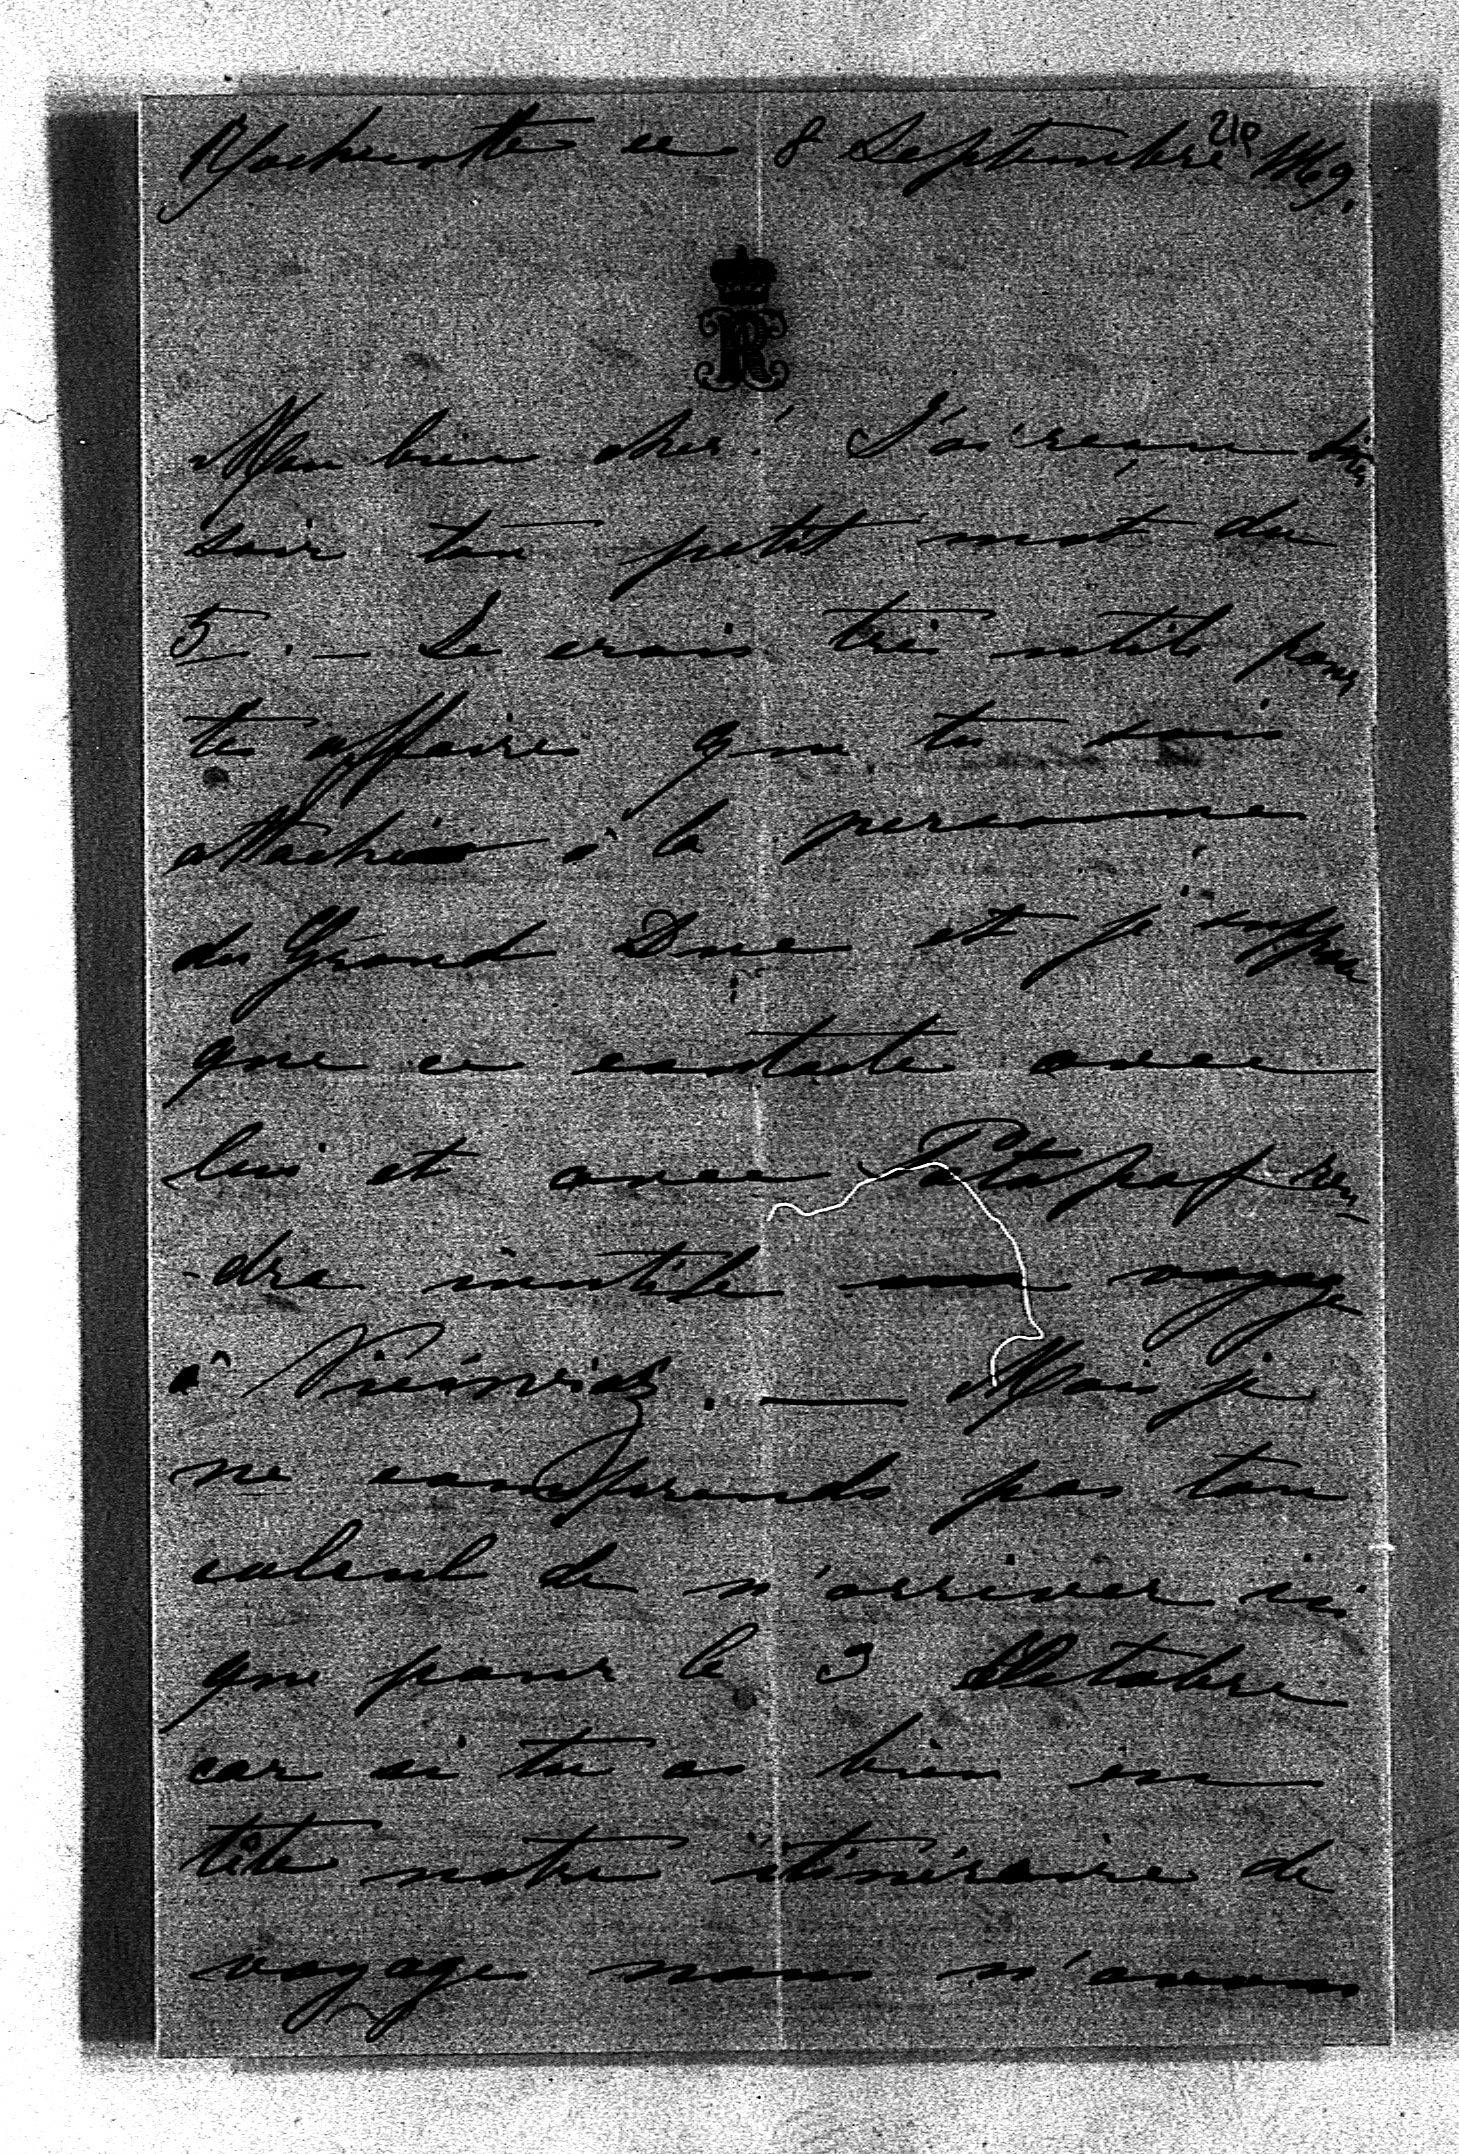 ce 8 Septembre 1869.
210
R
Mon bien cher! J'ai reçu hier
soir ton petit mot du
5. — Je crois très utile pour
tes affaires que tu sois
attaché à la personne
du Grand Duc et je suppose
que ce contacte avec
lui et avec Patapaf ren
-dra inutile voyage
à — Mais je
ne comprends pas ton
calcul de n'arriver ici
que pour le 3 Octobre
car si tu as bien en
tête notre itinéraire de
voyage nous n'avons